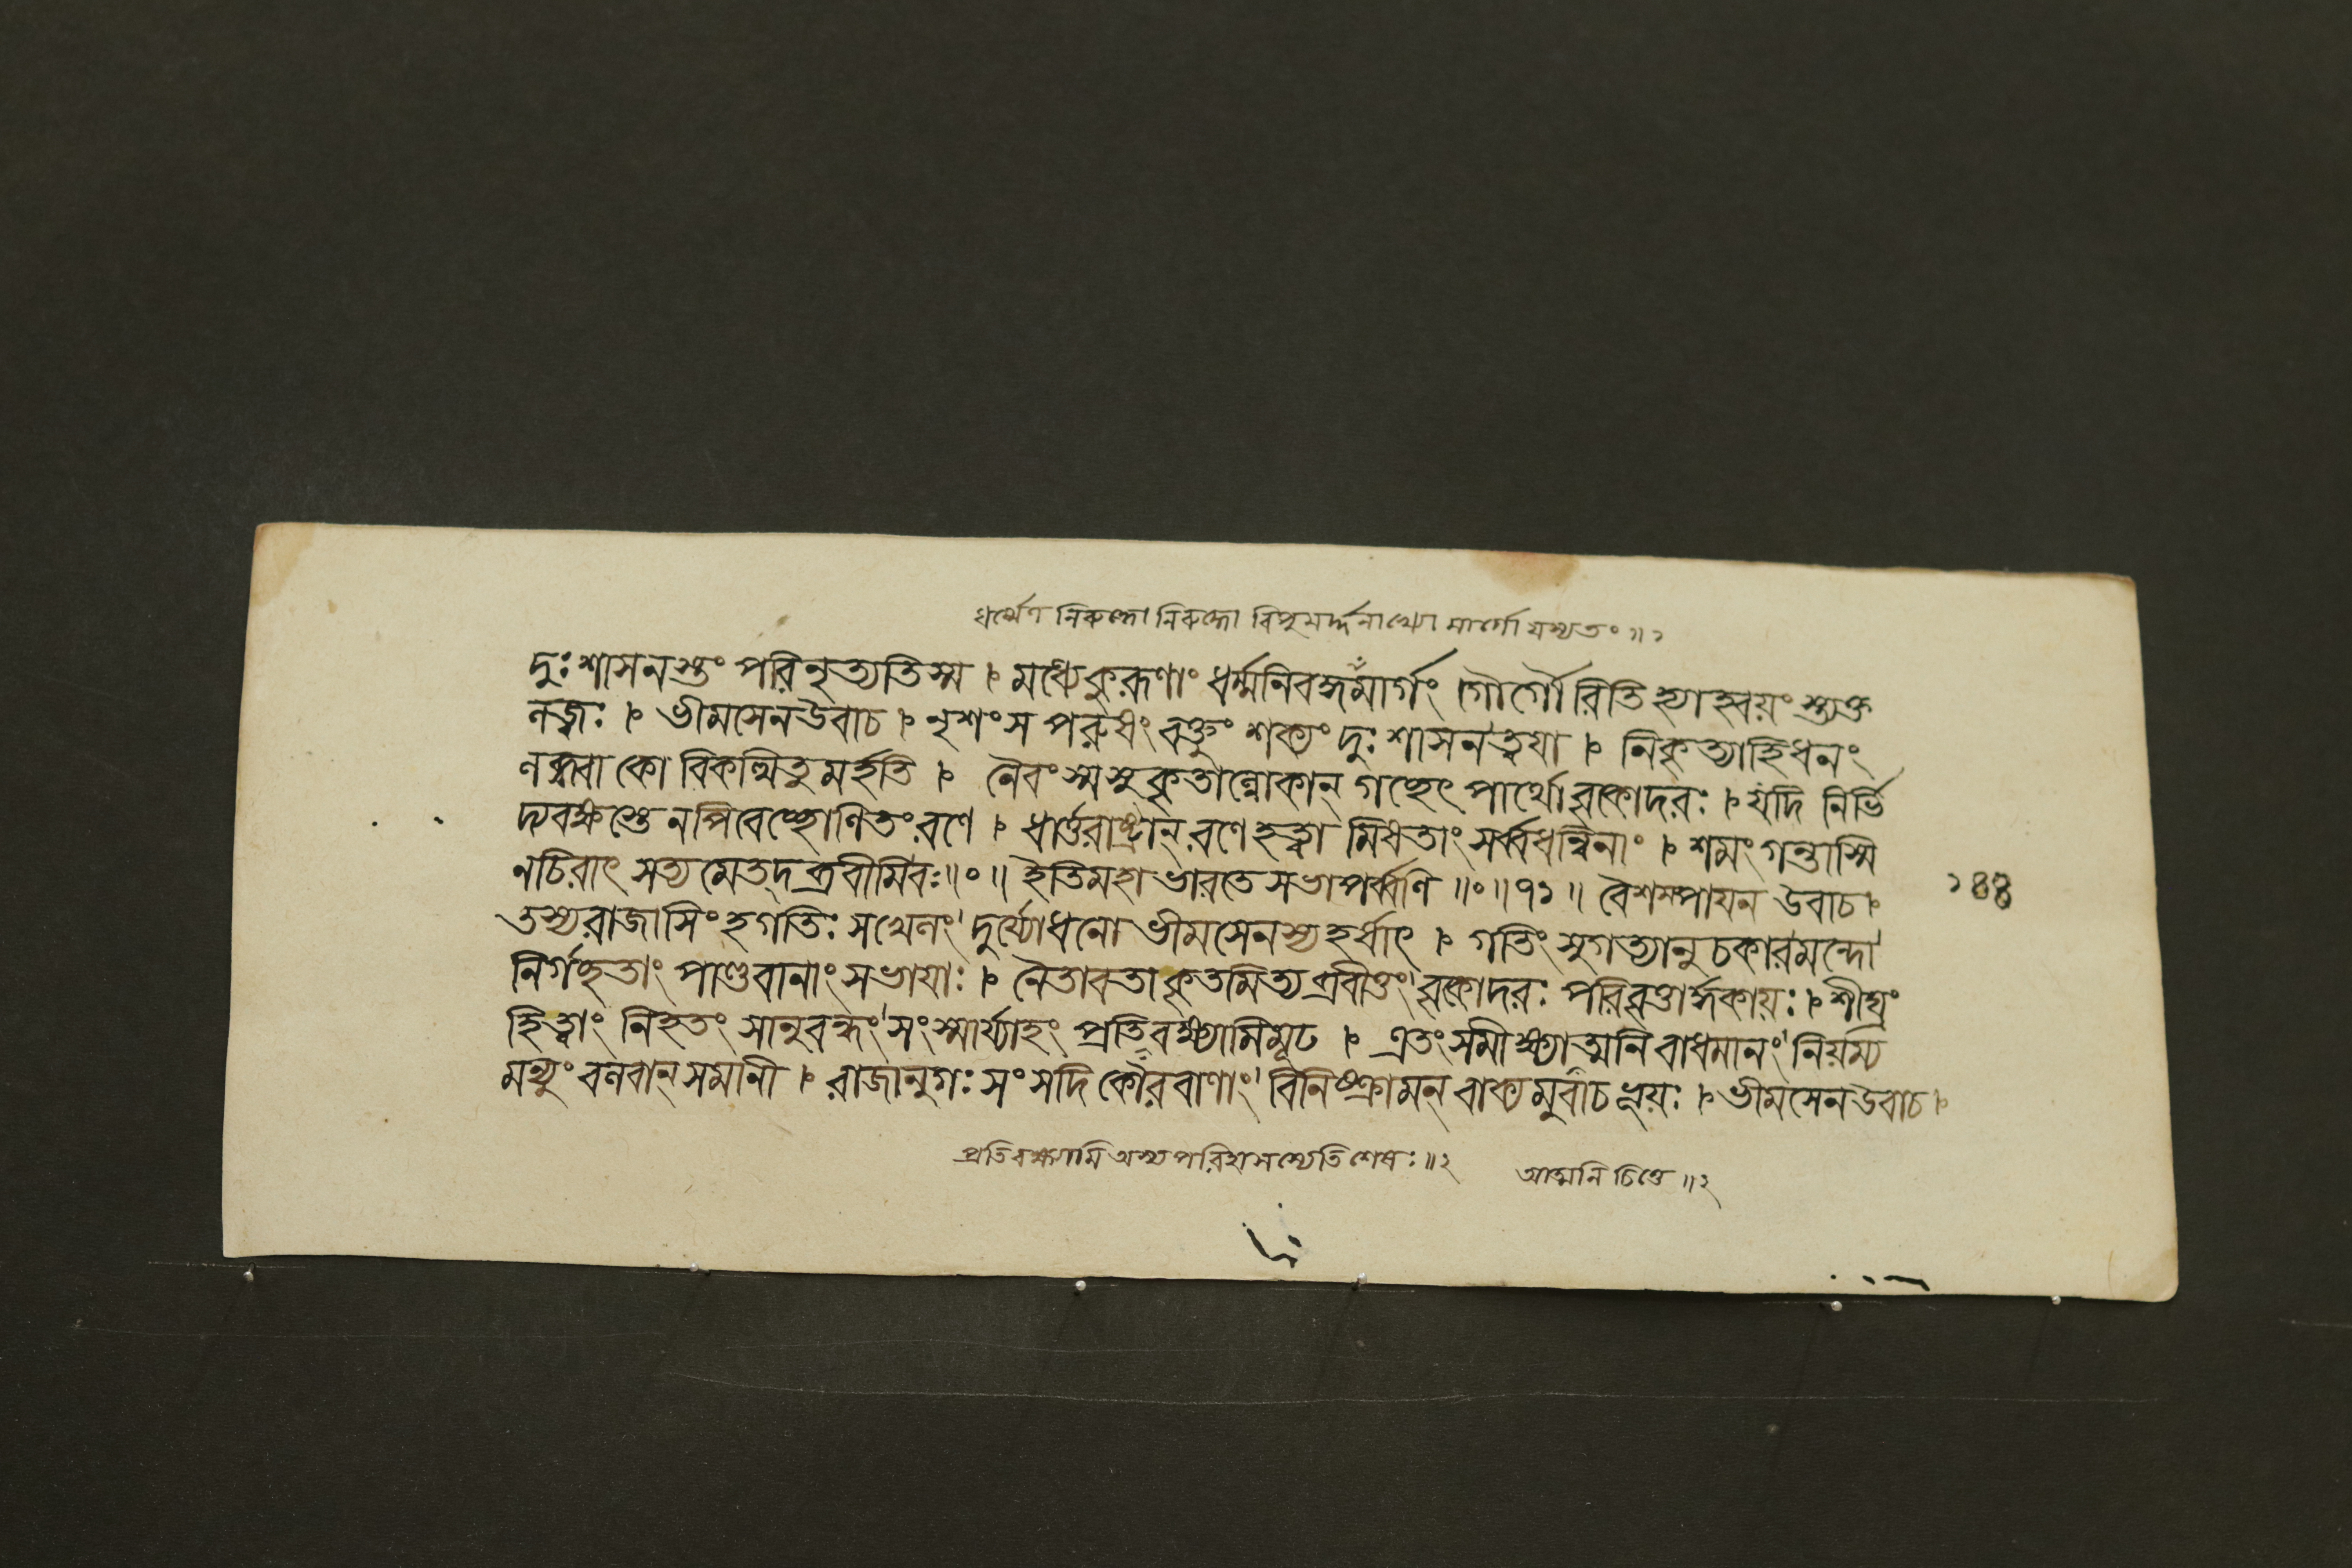 ধর্ম্মেণ নিরুদ্ধো নিরুদ্ধো রিপুমর্দ্দনাখ্যো মার্গো যস্যতং ॥ ১
দুঃশাসনস্তং পরিনৃত্যতিস্ম । মধ্যেকুরূণাং ধর্ম্মনিবদ্ধমার্গং গৌর্গৌরিতি হ্মাহ্বয়ং স্ত্যক্ত
নজ্জঃ । ভীমসেনউবাচ । নৃশংস পরুষং বক্তুং শক্যং দুঃশাসনত্বযা । নিকৃত্যাহিধনং
লব্ধ্বা কো বিকত্থিতুমর্হতি । নৈবংস্মসুকৃতাল্লোকান্ গচ্ছেৎ পার্থো বৃকোদরঃ । যদি নির্ভি
দ্যবক্ষস্তে নপিবেচ্ছোণিতংরণে । ধার্ত্তরাষ্ট্রান্ রণেহত্বা মিষতাং সর্ব্বধন্বিনাং । শমংগন্তাস্মি
নচিরাৎ সত্যমেতদ্ব্রবীমিবঃ ॥০॥ ইতিমহাভারতে সভাপর্ব্বণি ॥০॥৭১॥ বৈশম্পাযন উবাচ ।
তস্যরাজাসিংহগতিঃ সখেনং দুর্য্যোধনো ভীমসেনস্যহর্ষাৎ । গতিং সুগত্যানুচকারমন্দো
নির্গচ্ছতাং পাণ্ডবানাংসভাযাঃ । নৈতাবতাকৃতমিত্যব্রবীত্তং বৃকোদরঃ পরিবৃত্তার্দ্ধকায়ঃ । শীঘ্রং
হিত্বাং নিহতং সানুবন্ধং সংস্মার্য্যাহং প্রতিবক্ষ্যামিমূঢ । এতংসমীক্ষ্যাত্মনি বাধমানং নিয়ম্য
মন্যুং বলবান্ সমানী । রাজানুগঃ সংসদি কৌরবাণাং বিনিষ্ক্রামন্ বাক্যমুবাচ ভূয়ঃ । ভীমসেনউবাচ ।
১৪৪
প্রতিবক্ষ্যামি অস্য পরিহাসস্যেতি শেষঃ ॥ ২
আত্মনি চিত্তে ॥ ২